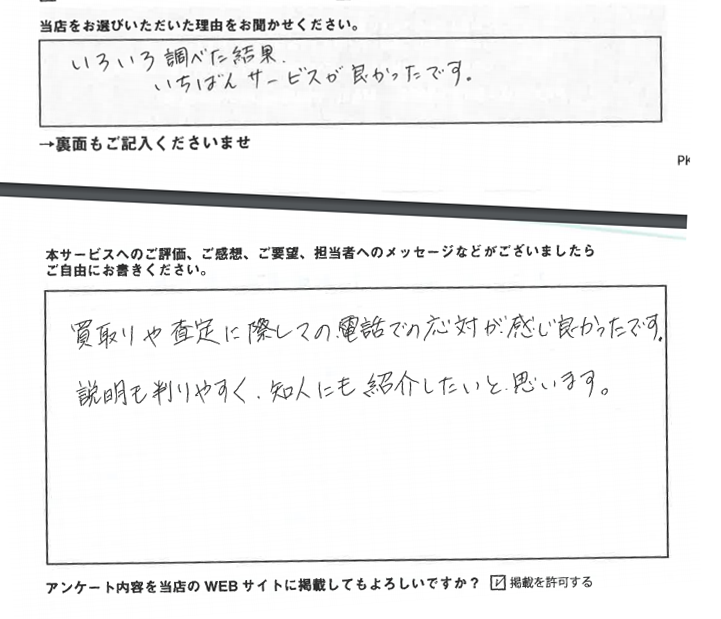 当店をお選びいただいた理由をお聞かせください。
いろいろ調べた結果、
いちばんサービスが良かったです。
→裏面もご記入くださいませ
PK
本サービスへのご評価、ご感想、ご要望、担当者へのメッセージなどがございましたら
ご自由にお書きください。
買取りや査定に際しての電話での応対が感じ良かったです。
説明も判りやすく、知人にも紹介したいと思います。
アンケート内容を当店のWEBサイトに掲載してもよろしいですか? ☑ 掲載を許可する